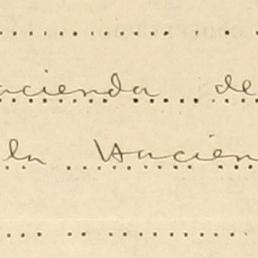 acienda de
la Hacien